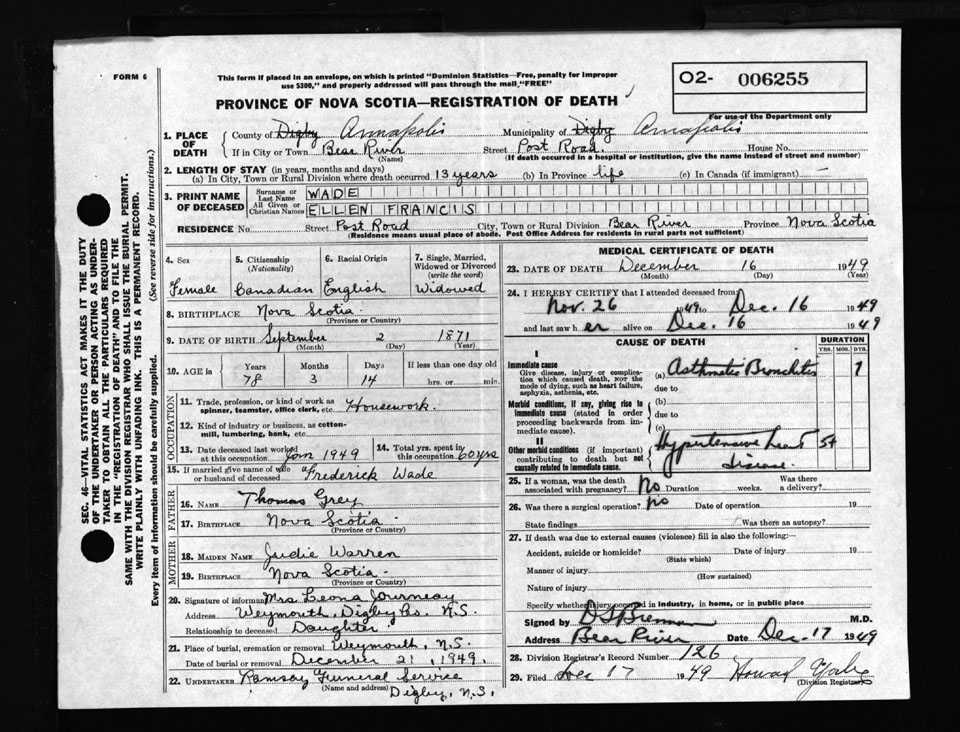 FORM 6
This form if placed in an envelope, on which is printed "Dominion Statistics—Free, penalty for improper
use $300," and properly addressed will pass through the mail, "FREE"
O2- 006255
For use of the Department only
PROVINCE OF NOVA SCOTIA—REGISTRATION OF DEATH
1. PLACE OF DEATH
County of Digby Annapolis Municipality of Digby Annapolis
If in City or Town Bear River Street Post Road. House No.
(Name) (If death occurred in a hospital or institution, give the name instead of street and number)
2. LENGTH OF STAY (in years, months and days)
(a) In City, Town or Rural Division where death occurred 13 years (b) In Province life (c) In Canada (if immigrant) —
3. PRINT NAME OF DECEASED
Surname or Last Name WADE
All Given or Christian Names ELLEN FRANCIS
RESIDENCE No. Street Post Road City, Town or Rural Division Bear River Province Nova Scotia
(Residence means usual place of abode. Post Office Address for residents in rural parts not sufficient)
4. Sex 5. Citizenship (Nationality) 6. Racial Origin 7. Single, Married, Widowed or Divorced (write the word)
Female Canadian English Widowed
8. BIRTHPLACE Nova Scotia
(Province or Country)
9. DATE OF BIRTH September 2 1871
(Month) (Day) (Year)
10. AGE in Years Months Days If less than one day old
78 3 14 hrs. or min.
OCCUPATION
11. Trade, profession, or kind of work as
spinner, teamster, office clerk, etc. Housework.
12. Kind of industry or business, as cotton-
mill, lumbering, bank, etc.
13. Date deceased last worked at this occupation 1949 14. Total yrs. spent in this occupation 60 yrs
15. If married give name of wife or husband of deceased Frederick Wade
FATHER
16. NAME Thomas Grey
17. BIRTHPLACE Nova Scotia
(Province or Country)
MOTHER
18. MAIDEN NAME Judie Warren
19. BIRTHPLACE Nova Scotia
(Province or Country)
20. Signature of informant Mrs Leona Journeay
Address Weymouth, Digby Co. N.S.
Relationship to deceased Daughter
21. Place of burial, cremation or removal Weymouth, N.S.
Date of burial or removal December 21, 1949.
22. UNDERTAKER Ramsay Funeral Service
(Name and address) Digby, N.S.
MEDICAL CERTIFICATE OF DEATH
23. DATE OF DEATH December 16 1949
(Month) (Day) (Year)
24. I HEREBY CERTIFY that I attended deceased from
Nov. 26 1949 to Dec. 16 1949
and last saw her alive on Dec. 16 1949
CAUSE OF DEATH DURATION
YRS. MOS. DYS.
I
Immediate cause
Give disease, injury or complica-
tion which caused death, not the
mode of dying, such as heart failure,
asphyxia, asthenia, etc.
(a) Asthmatic Bronchitis
due to
Morbid conditions, if any, giving rise to
immediate cause (stated in order
proceeding backwards from im-
mediate cause).
(b)
due to
(c)
II
Other morbid conditions (if important)
contributing to death but not
causally related to immediate cause.
Hypertensive heart
disease.
25. If a woman, was the death associated with pregnancy? No Duration weeks. Was there a delivery?
26. Was there a surgical operation? no Date of operation 19
State findings Was there an autopsy?
27. If death was due to external causes (violence) fill in also the following:—
Accident, suicide or homicide? Date of injury 19
(State which)
Manner of injury
(How sustained)
Nature of injury
Specify whether injury occurred in industry, in home, or in public place
Signed by M.D.
Address Bear River Date Dec. 17 1949
28. Division Registrar's Record Number 126
29. Filed Dec 17 1949 Howard
(Division Registrar)
SEC. 46—VITAL STATISTICS ACT MAKES IT THE DUTY
OF THE UNDERTAKER OR PERSON ACTING AS UNDER-
TAKER TO OBTAIN ALL THE PARTICULARS REQUIRED
IN THE "REGISTRATION OF DEATH" AND TO FILE THE
SAME WITH THE DIVISION REGISTRAR WHO SHALL ISSUE THE BURIAL PERMIT.
WRITE PLAINLY WITH UNFADING INK. THIS IS A PERMANENT RECORD.
Every item of information should be carefully supplied. (See reverse side for instructions.)